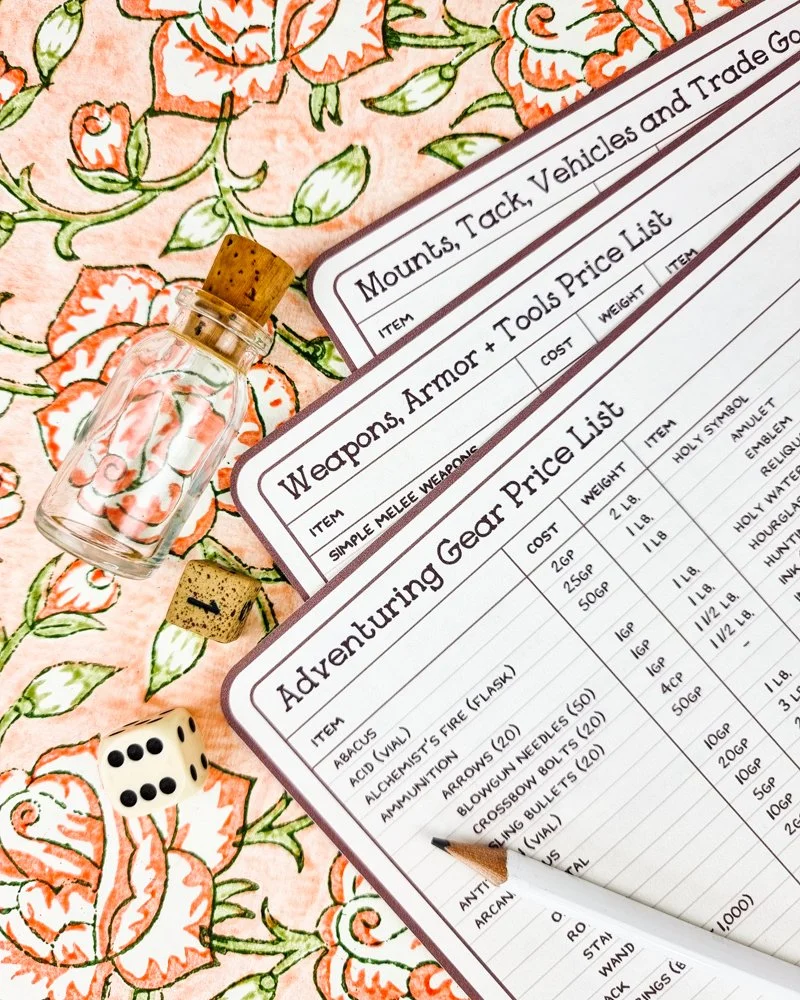 Mounts, Tack, Vehicles and Trade Go
ITEM
Weapons, Armor + Tools Price List
ITEM COST WEIGHT ITEM
SIMPLE MELEE WEAPONS
Adventuring Gear Price List
ITEM COST WEIGHT ITEM
ABACUS 2GP 2 LB. HOLY SYMBOL
ACID (VIAL) 25GP 1 LB. AMULET
ALCHEMIST'S FIRE (FLASK) 50GP 1 LB EMBLEM
AMMUNITION RELIQU
ARROWS (20) 1GP 1 LB. HOLY WATER
BLOWGUN NEEDLES (50) 1GP 1 LB. HOURGLA
CROSSBOW BOLTS (20) 1 1/2 LB. HUNTI
SLING BULLETS (20) 4CP 1 1/2 LB. INK
ANTIT (VIAL) 50GP -
ARCAN US
TAL 10GP 1 LB.
O 20GP 3 L
RO 10GP
STA 5GP
WAND 10GP
ACK 2G
INGS (B 1,000)
1